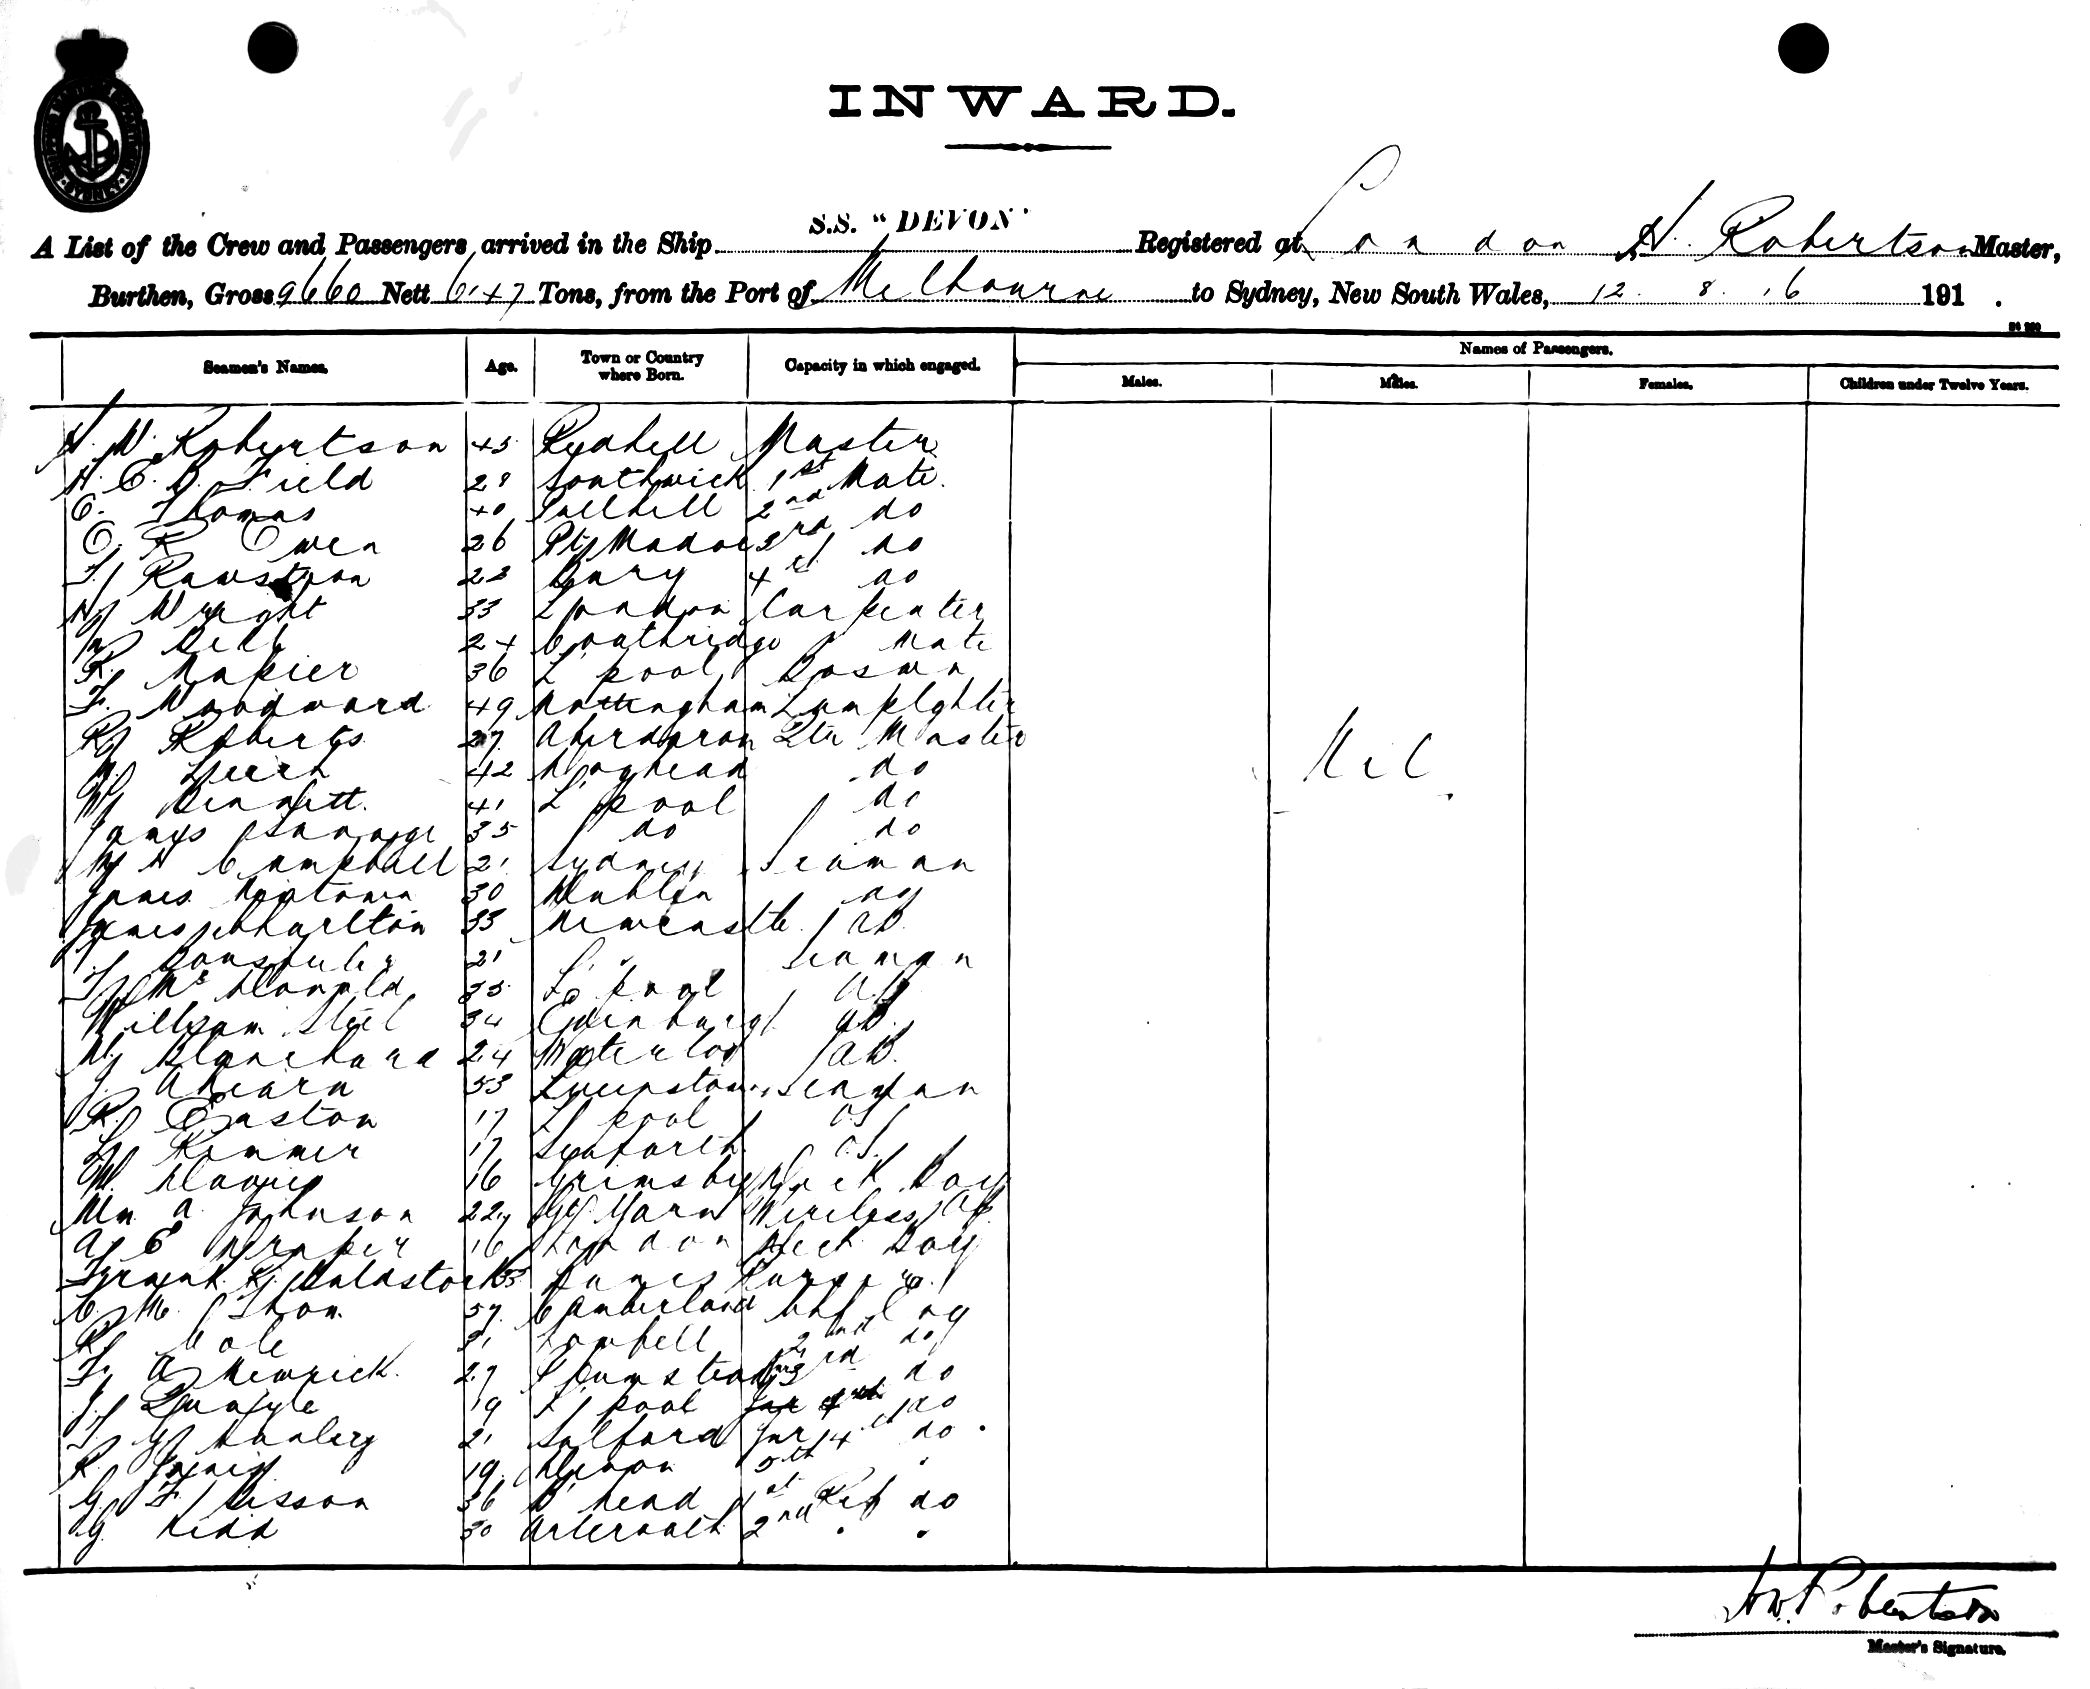 INWARD.
A List of the Crew and Passengers arrived in the Ship S.S. "DEVON" Registered at London H. Robertson Master,
Burthen, Gross 9660 Nett 6147 Tons, from the Port of Melbourne to Sydney, New South Wales, 12. 8. 16 191 .
Seamen's Names. Age. Town or Country where Born. Capacity in which engaged. Names of Passengers.
Males. Males. Females. Children under Twelve Years.
H. W. Robertson 45 Redhill Master
H. E. B. Field 28 Southwick 1st Mate.
E. Thomas 40 2nd do
O. R. Owen 26 Pt Madoc 3rd do
F. Rawstron 23 Bury 4th do
H Wright 33 London Carpenter
24 Coatbridge Mate
R. Napier 36 L'pool Boswn
F. Woodward 49 Nottingham Lamplghter
R Roberts 27 Aberdaron Qtr Master
Leech 42 do
W Bennett. 41 L'pool do
James 35 do do
W H Campbell 21 Sydney Seaman
James 30 Dublin
James Charlton 33 Newcastle AB.
21 Seaman
McDonald 35 L'pool AB
William Steel 34 Edinburgh AB.
W Blanchard 24 Waterloo AB.
J. Ahearn 53 Queenstown Seaman
R. Easton 17 L'pool OS
Rimmer 17 Seaforth. O.S.
W. Davies 16 Grimsby Deck Boy
Wm A. Johnson 22 Gt. Yarm Wireless Op.
A E Draper 16 London Deck Boy
55 Purser
C. M. Thom. 57. Cumberland Chf Eng
R Cole 31 2nd do
F. A Newrick. 27 Plumstead 3rd do
J Quayle 19 L'pool do
Hanley 21 Salford Jnr 4th do.
R. 19. Devon 5th "
G. F. Sisson 36 B'head 1st Ref do
G. Kidd 30 2nd " "
Nil
H.W. Robertson
Master's Signature.